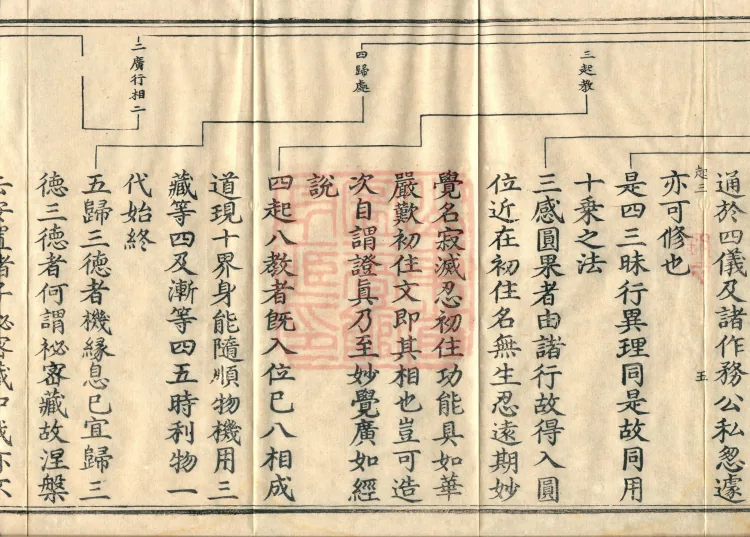 三起教
四歸處
二廣行相二
通於四儀及諸作務公私怱遽
起三
五
亦可修也
是四三昧行異理同是故同用
十乘之法
三感圓果者由諸行故得入圓
位近在初住名無生忍遠期妙
覺名寂滅忍初住功能具如華
嚴歎初住文即其相也豈可造
次自謂證眞乃至妙覺廣如經
說
四起八教者旣入位已八相成
道現十界身能隨順物機用三
藏等四及漸等四五時利物一
代始終
五歸三德者機緣息已宜歸三
德三德者何謂祕密藏故涅槃